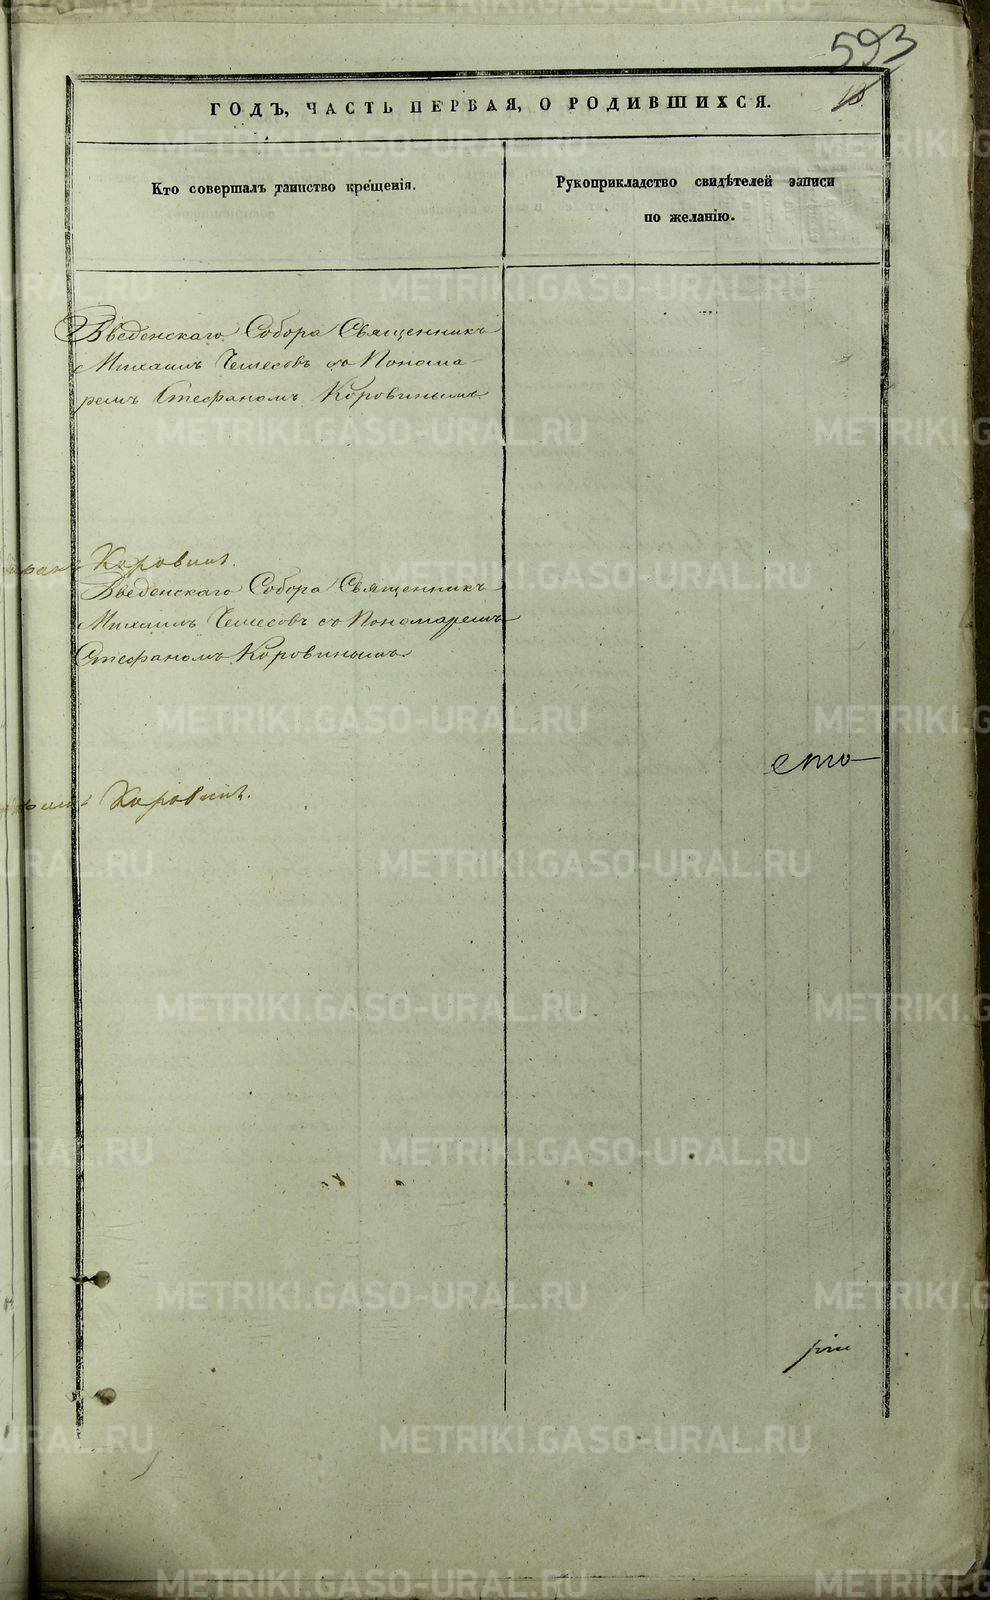 593
ГОДЪ, ЧАСТЬ ПЕРВАЯ, О РОДИВШИХСЯ.
Кто совершалъ таинство крещенія.
Рукоприкладство свидѣтелей записи
по желанію.
Введенскаго Собора Священникъ
Михаилъ Чемесовъ со Понома-
ремъ Стефаномъ Коровинымъ
Коровинъ.
Введенскаго Собора Священникъ
Михаилъ Чемесовъ со Пономаремъ
Стефаномъ Коровинымъ
ето
Коровинъ.
METRIKI.GASO-URAL.RU